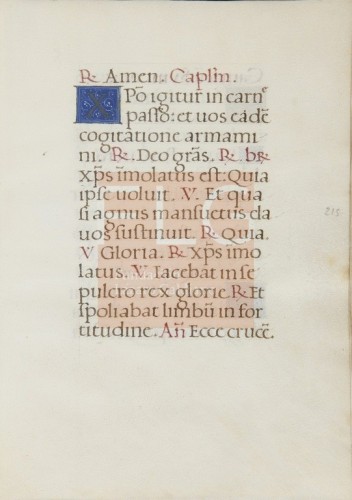 R. Amen. Caplm.
XPo igitur in carne
passo: et uos eadẽ
cogitatione armami
ni. R. Deo gr̃as. R. br̃
xp̃s imolatus est: Quia
ipse uoluit. V. Et qua
si agnus mansuetus da
uos sustinuit. R. Quia.
V Gloria. R. xp̃s imo
latus. V. Iacebat in se
pulcro rex glorie. R. Et
spoliabat limbũ in for
titudine. Añ Ecce crucẽ.
215
FLG